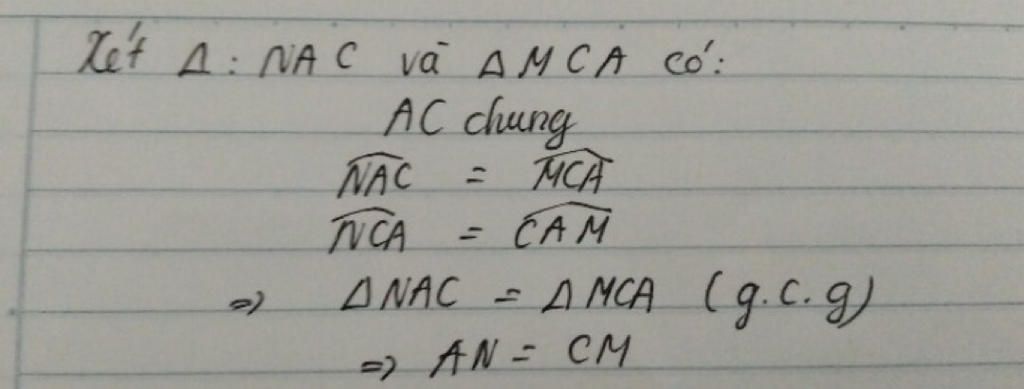 Xét Δ: NAC và ΔMCA có:
AC chung
\widehat{NAC} = \widehat{MCA}
\widehat{NCA} = \widehat{CAM}
=> ΔNAC = ΔMCA (g.c.g)
=> AN = CM